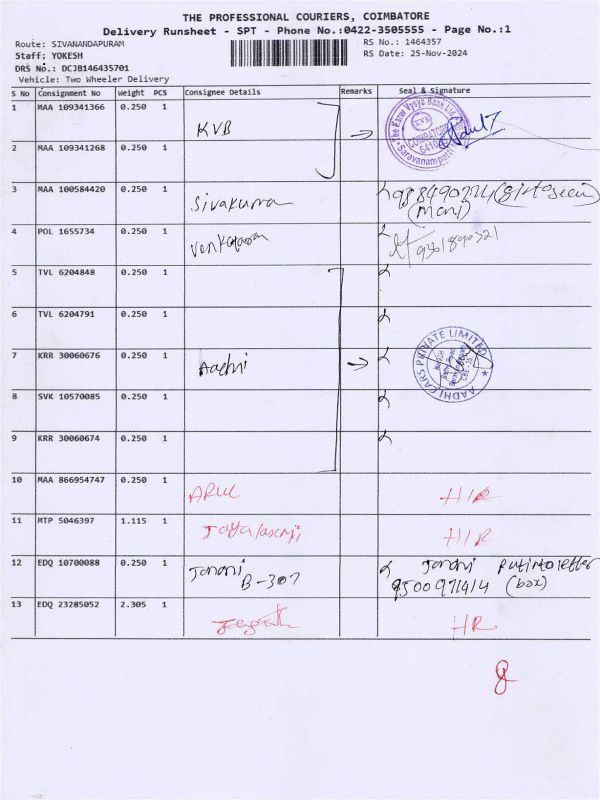 THE PROFESSIONAL COURIERS, COIMBATORE
Delivery Runsheet - SPT - Phone No.:0422-3505555 - Page No.:1
Route: SIVANANDAPURAM RS No.: 1464357
Staff: YOKESH RS Date: 25-Nov-2024
DRS No.: DCJB146435701
Vehicle: Two Wheeler Delivery
S No Consignment No Weight PCS Consignee Details Remarks Seal & Signature
1 MAA 109341366 0.250 1 KVB
The Karur Vysya Bank Ltd. KVB COIMBATORE Saravanampatti
2 MAA 109341268 0.250 1
3 MAA 100584420 0.250 1 Sivakumar
(Mani)
4 POL 1655734 0.250 1 9361890321
5 TVL 6204848 0.250 1
6 TVL 6204791 0.250 1
7 KRR 30060676 0.250 1 Aadhi
AADHI CARS PRIVATE LIMITED
8 SVK 10570085 0.250 1
9 KRR 30060674 0.250 1
10 MAA 866954747 0.250 1 ARUL H/R
11 MTP 5046397 1.115 1 H/R
12 EDQ 10700088 0.250 1 Janani Janani Put into letter
B-307 9500971414 (box)
13 EDQ 23285052 2.305 1 HR
8